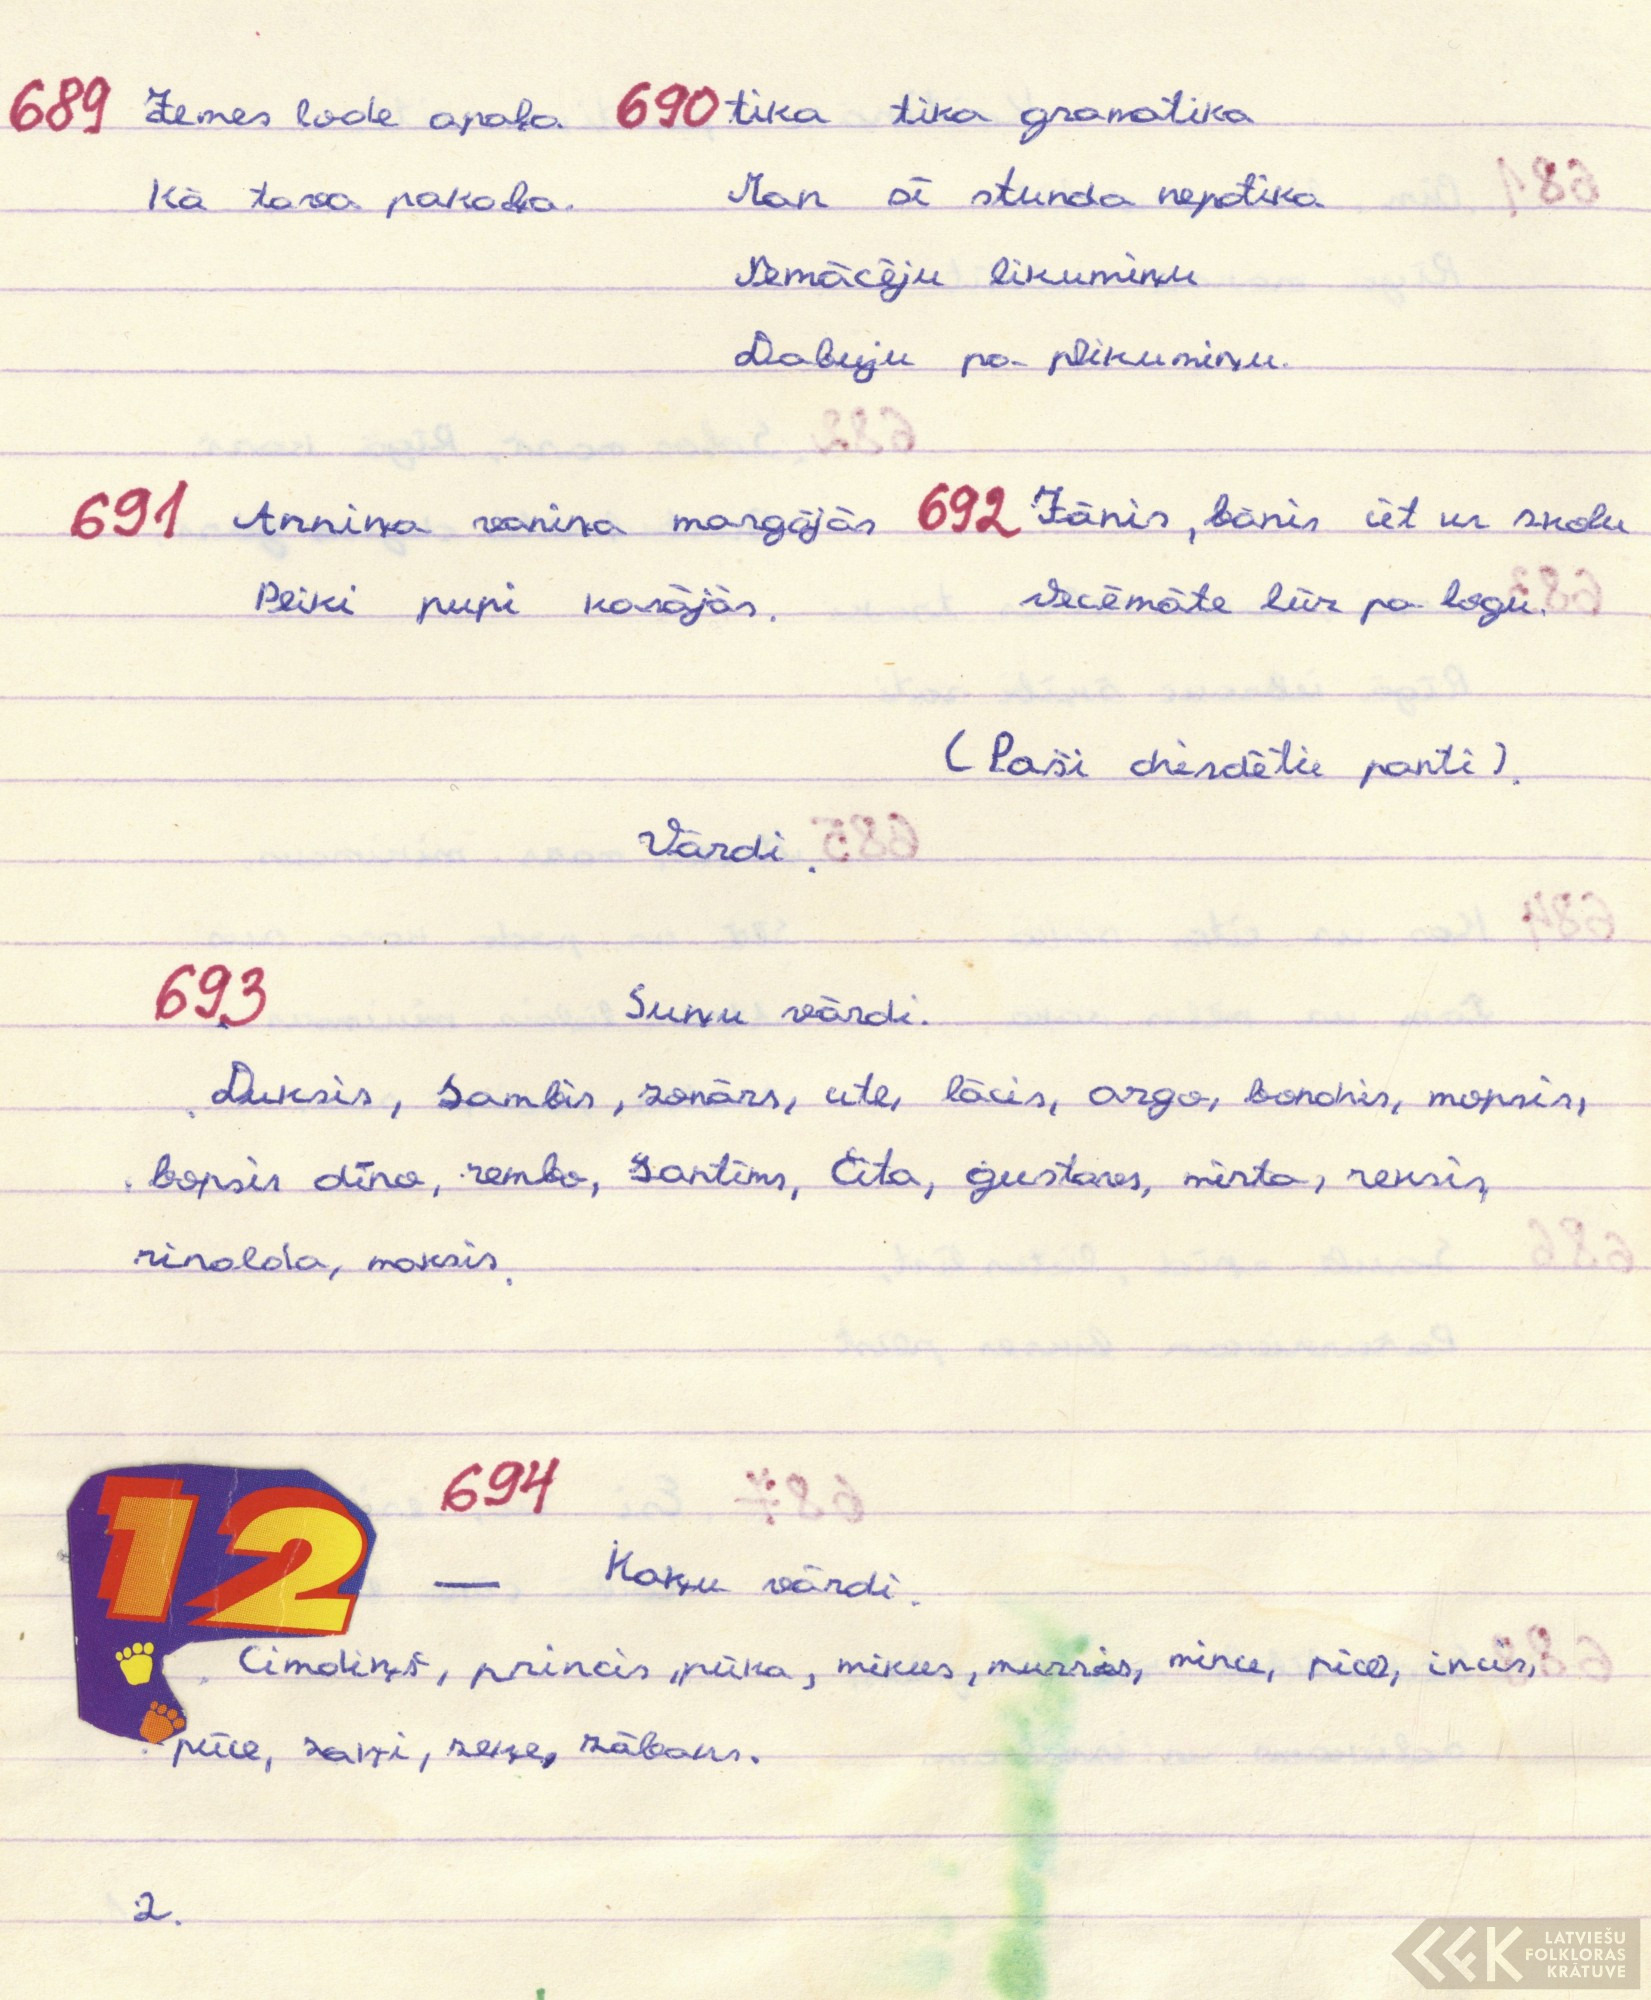 689 Zemes lode apaļa
Kā tava pakaļa.
690 tika tika gramatika
Man šī stunda nepatika
Nemācēju likumiņu
Dabuju pa plikumiņu.
691 Anniņa vanniņa mazgājās
Pliki pupi karājās.
692 Jānis, bānis iet uz skolu
Vecāmāte lūr pa logu.
(Paši dziedātie panti).
Vārdi.
693
Suņu vārdi.
Duksis, Sambis, zonārs, ute, lācis, argo, bondžis, mopsis,
bopsis dīno, rembo, Santīms, Čita, gustavs, mirta, reksis,
rinalda, maksis.
12
694
— Kaķu vārdi.
Cimdiņš, princis, pūka, mikus, murris, mince, pice, incis,
pūce, zaķi, zeķe, zābaks.
2.
LATVIEŠU
FOLKLORAS
KRĀTUVE